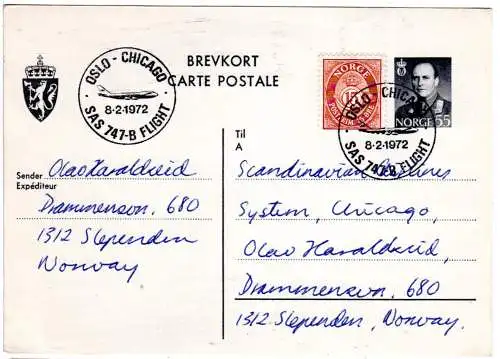 OSLO - CHICAGO
8-2-1972
SAS 747-B FLIGHT
BREVKORT
CARTE POSTALE
NORGE
15
NORGE 55
OSLO - CHICAGO
8-2-1972
SAS 747-B FLIGHT
Sender
Expéditeur
Olav Haraldseid
Drammensvn. 680
1312 Slependen
Norway
Til
A
Scandinavian Airlines
System, Chicago,
Olav Haraldseid,
Drammensvn. 680
1312 Slependen, Norway.